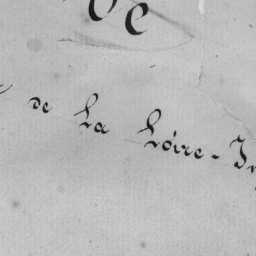 de La Loire-In